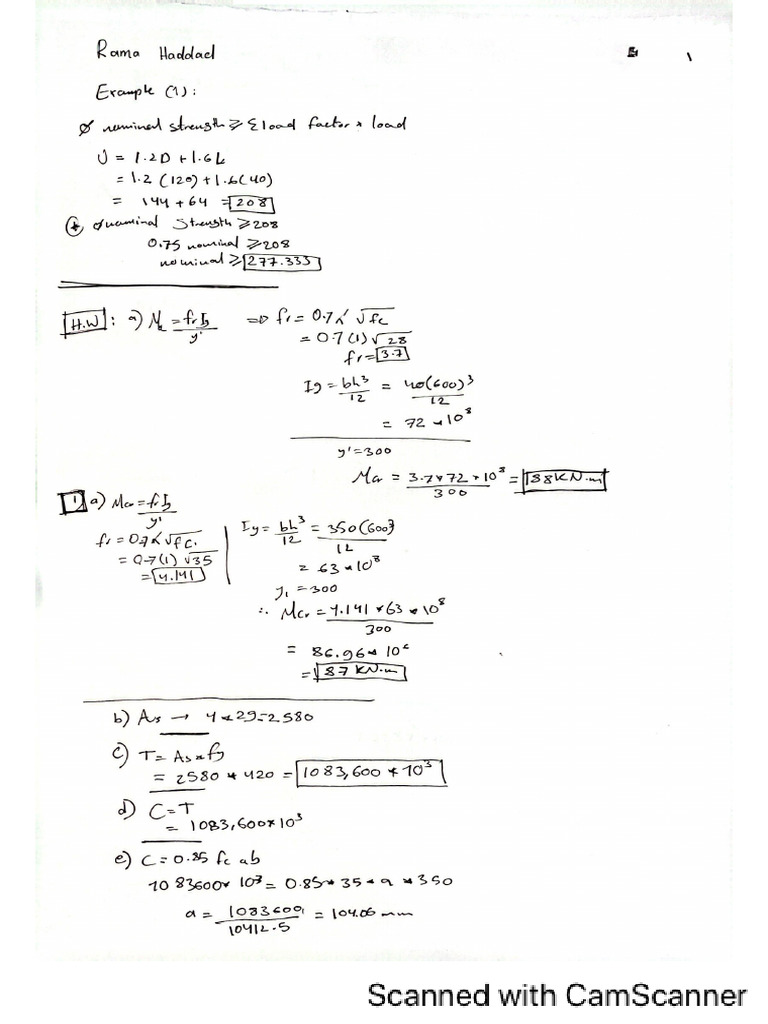 Rama Haddad
1
Example (1):
Ø nominal strength ⩾ Σ load factor * load
U = 1.2D + 1.6L
= 1.2 (120) + 1.6(40)
= 144 + 64 = 208
* Ø nominal Strength ⩾ 208
0.75 nominal ⩾ 208
nominal ⩾ 277.333
H.W : a) M = fr Ig / y' ⇒ fr = 0.7 λ √fc
= 0.7 (1) √28
fr = 3.7
Ig = bh³/12 = 40(600)³/12
= 72 * 10⁸
y' = 300
Mcr = 3.7 * 72 * 10⁸ / 300 = 88 KN.m
1 a) Mcr = fr Ig / y'
fr = 0.7 λ √fc
= 0.7 (1) √35
= 4.141
Ig = bh³/12 = 350(600)³/12
= 63 * 10⁸
y1 = 300
∴ Mcr = 4.141 * 63 * 10⁸ / 300
= 86.96 * 10⁶
= 87 KN.m
b) As → 4 * 29 = 2580
c) T = As * fy
= 2580 * 420 = 1083,600 * 10³
d) C = T
= 1083,600 * 10³
e) C = 0.85 fc ab
1083600 * 10³ = 0.85 * 35 * a * 350
a = 1083600 / 10412.5 = 104.06 mm
Scanned with CamScanner